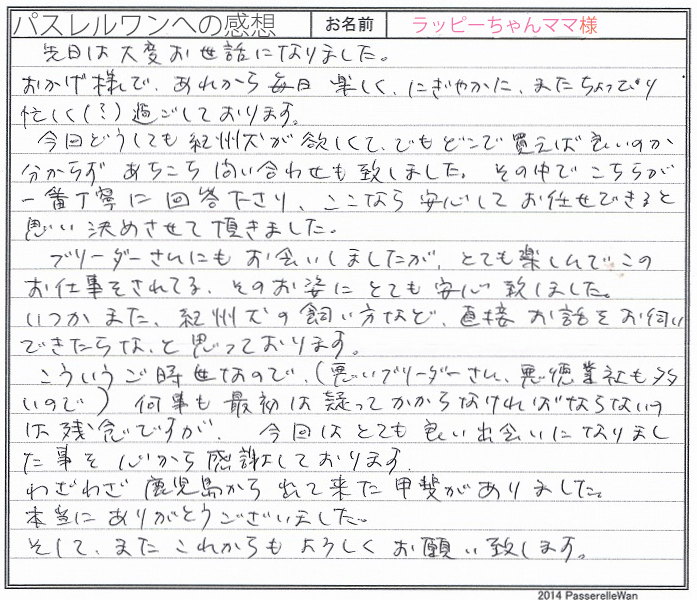 パスレルワンへの感想 お名前 ラッピーちゃんママ様
先日は大変お世話になりました。
おかげ様で、あれから毎日楽しく、にぎやかに、またちょっぴり
忙しく(!?)過ごしております。
今回どうしても紀州犬が欲しくて、でもどこで買えば良いのか
分からず あちこち問い合わせも致しました。その中でこちらが
一番丁寧に回答下さり、ここなら安心してお任せできると
思い決めさせて頂きました。
ブリーダーさんにもお会いしましたが、とても楽しんでこの
お仕事をされてる、そのお姿にとても安心致しました。
いつかまた、紀州犬の飼い方など、直接お話をお伺い
できたらな、と思っております。
こういうご時世なので、(悪いブリーダーさん、悪徳業社も多
いので) 何事も最初は疑ってかからなければならないの
は残念ですが、今回はとても良い出会いになりまし
た事を心から感謝しております。
わざわざ鹿児島から出て来た甲斐がありました。
本当にありがとうございました。
そして、またこれからもよろしくお願い致します。
2014 PasserelleWan